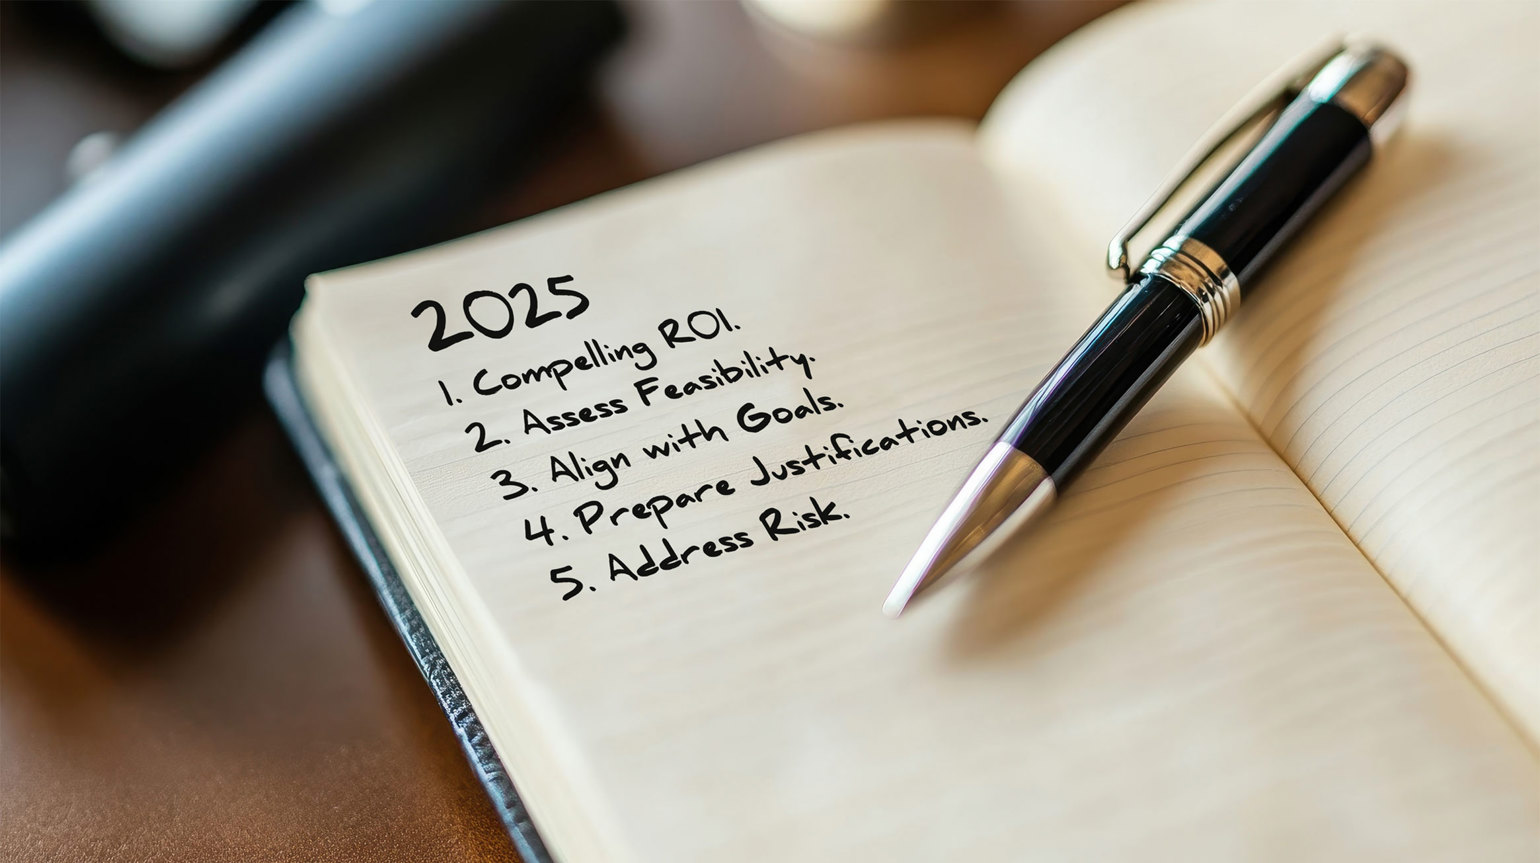 2025
1. Compelling ROI.
2. Assess Feasibility.
3. Align with Goals.
4. Prepare Justifications.
5. Address Risk.